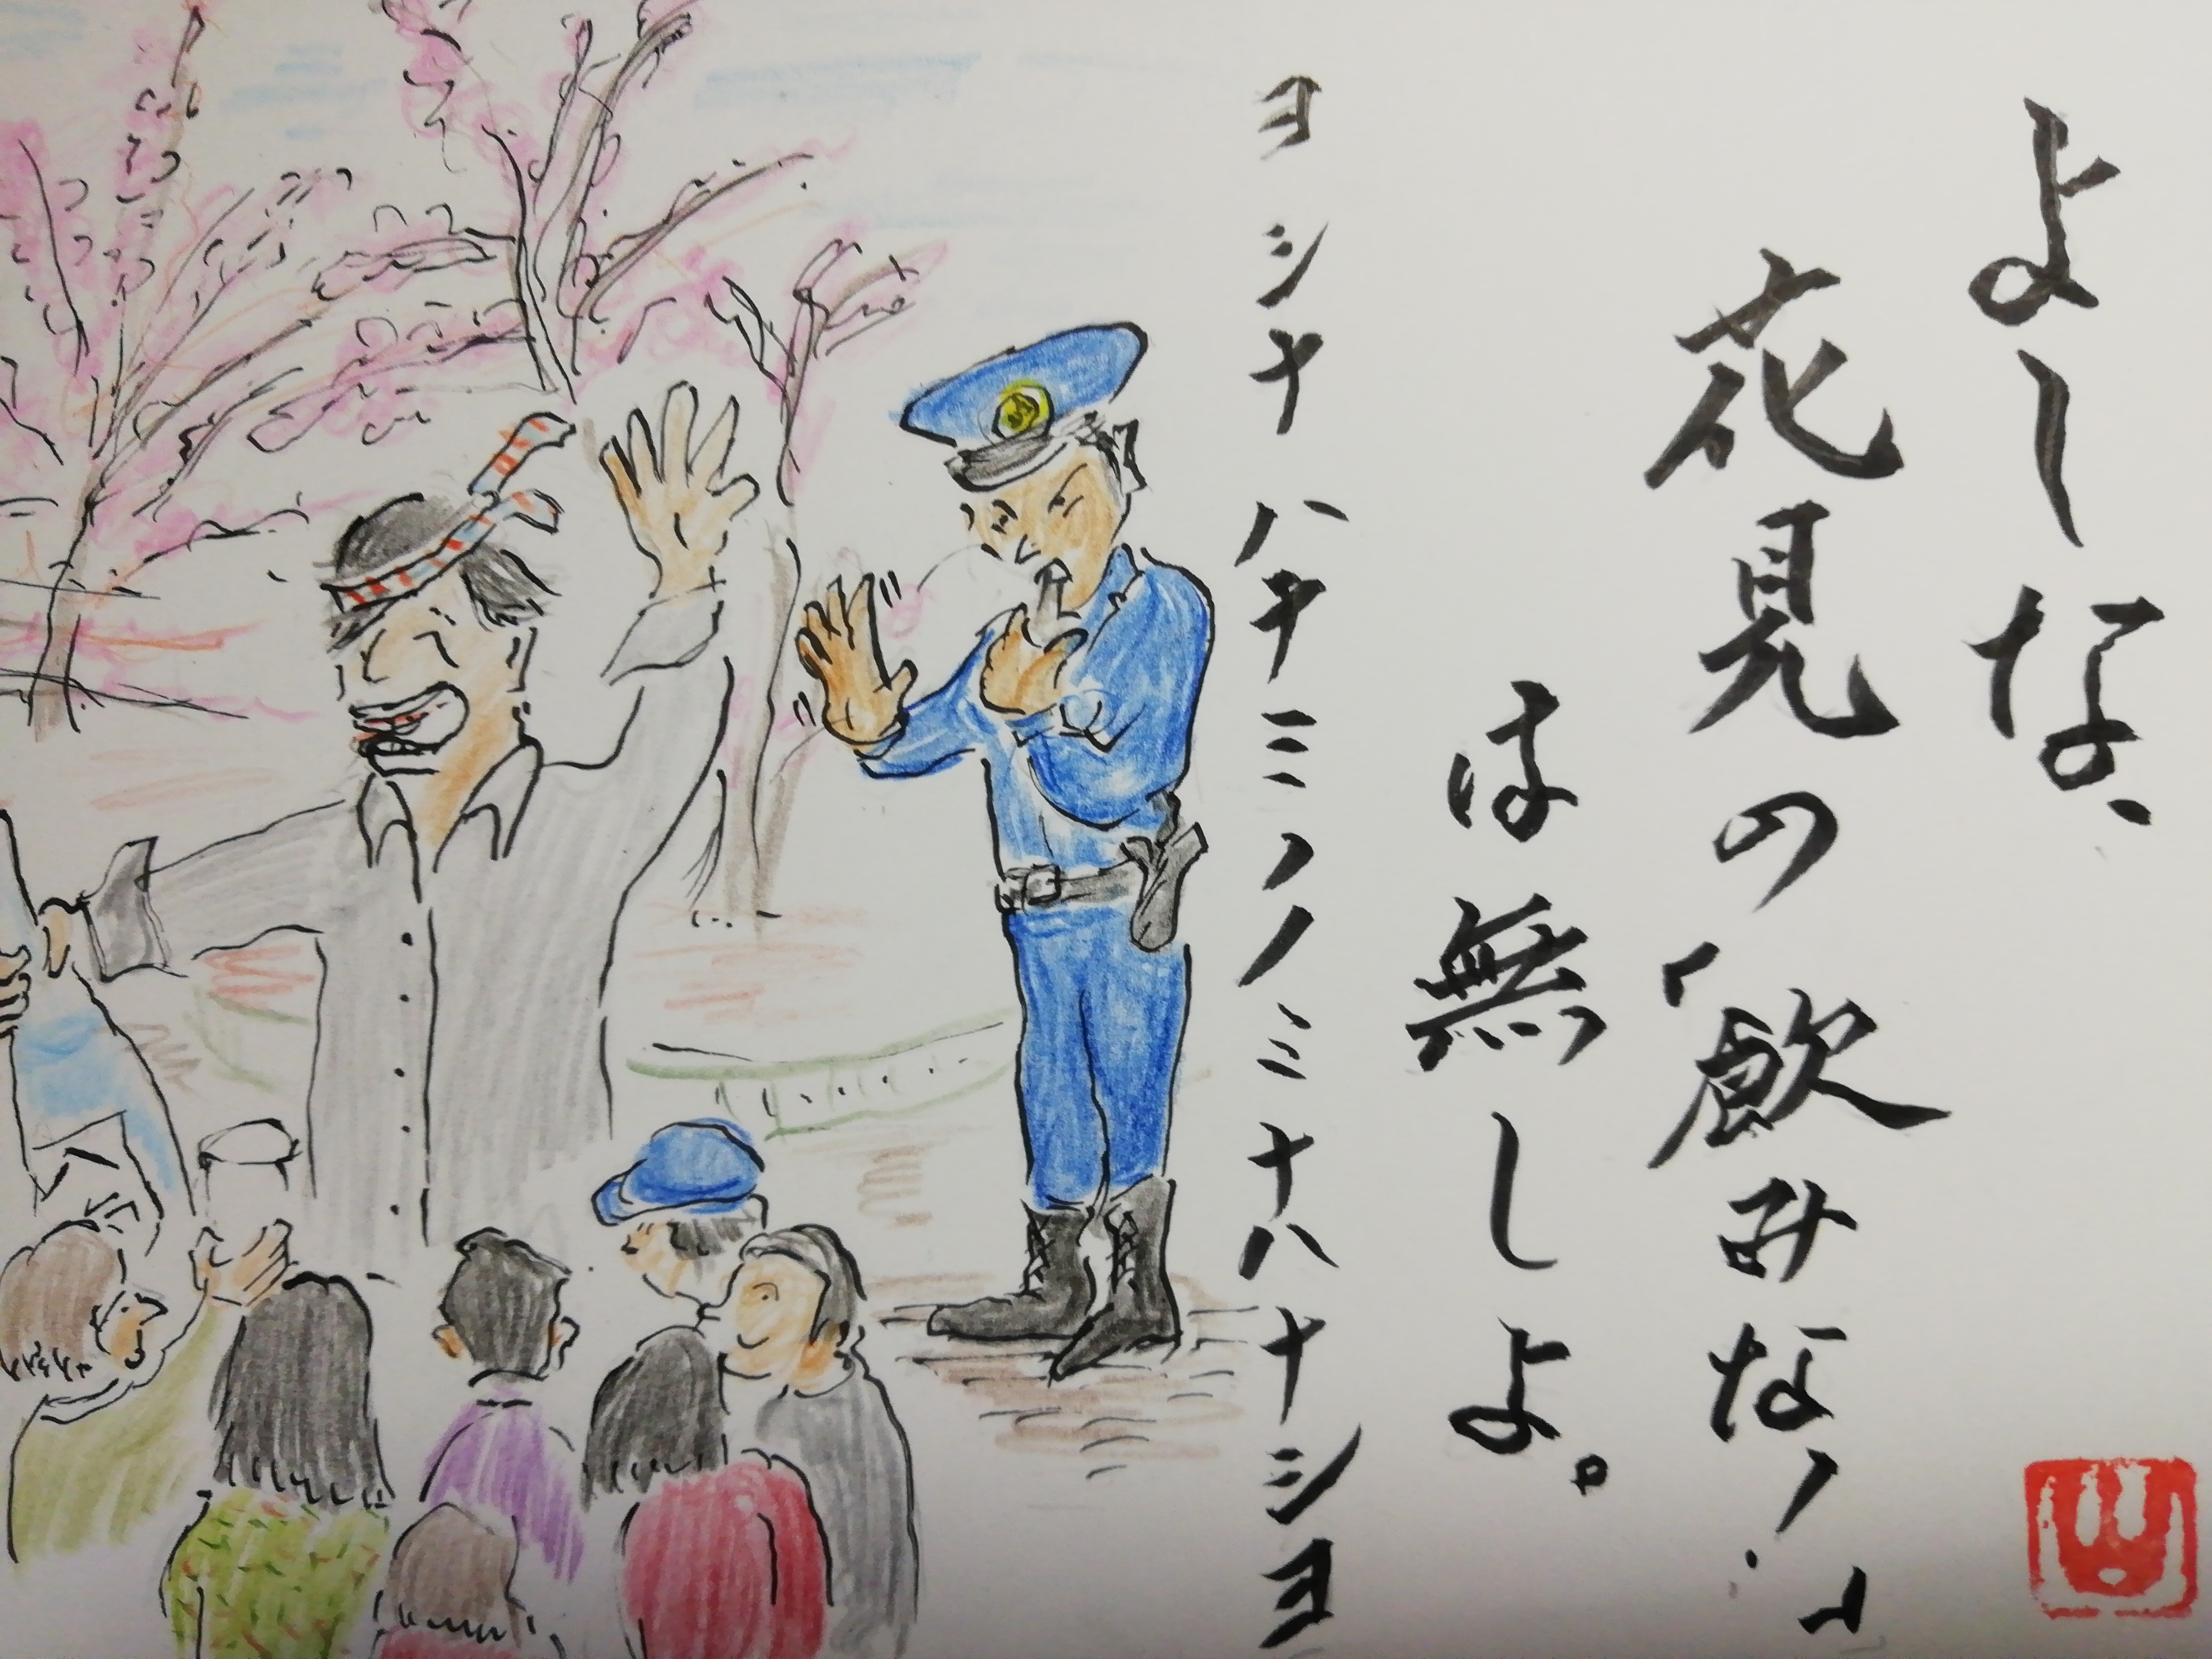 よしな、
花見の「飲みな!」
は無しよ。
ヨシナハナミノノミナハナシヨ